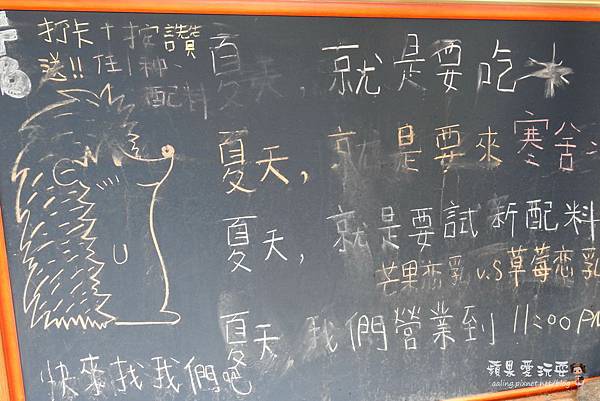 打卡+按讚
送!!任1種
配料
夏天，就是要吃冰
夏天，就是要來寒舍
夏天，就是要試新配料
芒果恋乳 v.s 草莓恋乳
夏天，我們營業到 11:00 PM
快來找我們吧
蘋果愛玩耍
aaling.pixnet.net/blog